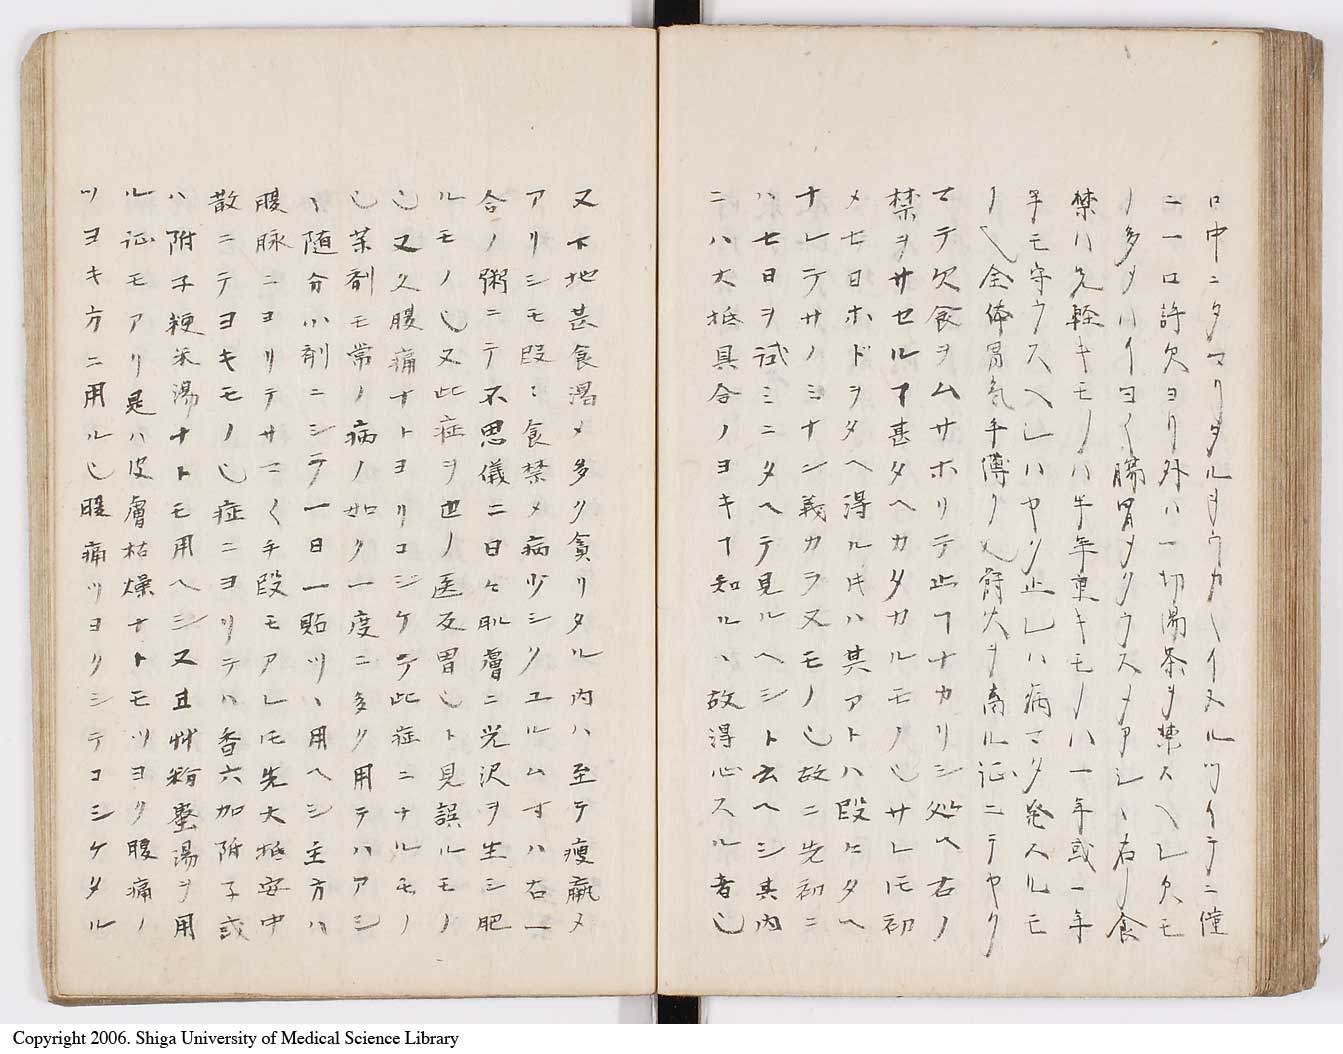 口中ニタマリタルヲウカヾイヌルツイテニ僅
ニ一口許欠ヨリ外ハ一切湯茶ヲ禁スヘシ欠モ
ノ多タハイヨ〱腸胃メクウスメアシヽ右ノ食
禁ハ先軽キモノハ半年重キモノハ一年或一年
半モ守ウスヘシハヤク止レハ病マタ発スルモ
ノ也全体胃気手薄ク乄餠火ヲ高ル証ニテヤク
マテ欠食ヲムサホリテ止ヿナカリシ処ヘ右ノ
禁ヲサセルヿ甚タヘカタカルモノ也サレ𪜈初
メ七日ホドヲタヘ得ル𪜈ハ其アトハ段々タヘ
ナレテサノミナン義カラヌモノ也故ニ先初ニ
ハ七日ヲ試ミニタヘテ見ルヘシト云ヘシ其内
ニハ大抵具合ノヨキヿ知ルヽ故得心スル者也
又下地甚食渇メ多ク貪リタル内ハ至テ痩羸メ
アリシモ段々食禁メ病少シクユルムオハ右一
合ノ粥ニテ不思儀ニ日々肌膚ニ光沢ヲ生シ肥
ルモノ也又此症ヲ世ノ医反胃也ト見誤ルモノ
也又久腹痛ナトヨリコシケテ此症ニナルモノ
也茉剤モ常ノ病ノ如ク一度ニ多ク用テハアシ
ヽ随分小剤ニシテ一日一貼ツヽ用ヘシ主方ハ
腹脉ニヨリテサマ〱手段モアレ𪜈先大抵安中
散ニテヨキモノ也症ニヨリテハ香六加附子或
ハ附子粳米湯ナトモ用ヘシ又且艸粉蜜湯ヲ用
ル証モアリ是ハ皮膚枯燥ナトモツヨク腹痛ノ
ツヨキ方ニ用ル也腹痛ツヨクシテコシケタル
Copyright 2006. Shiga University of Medical Science Library